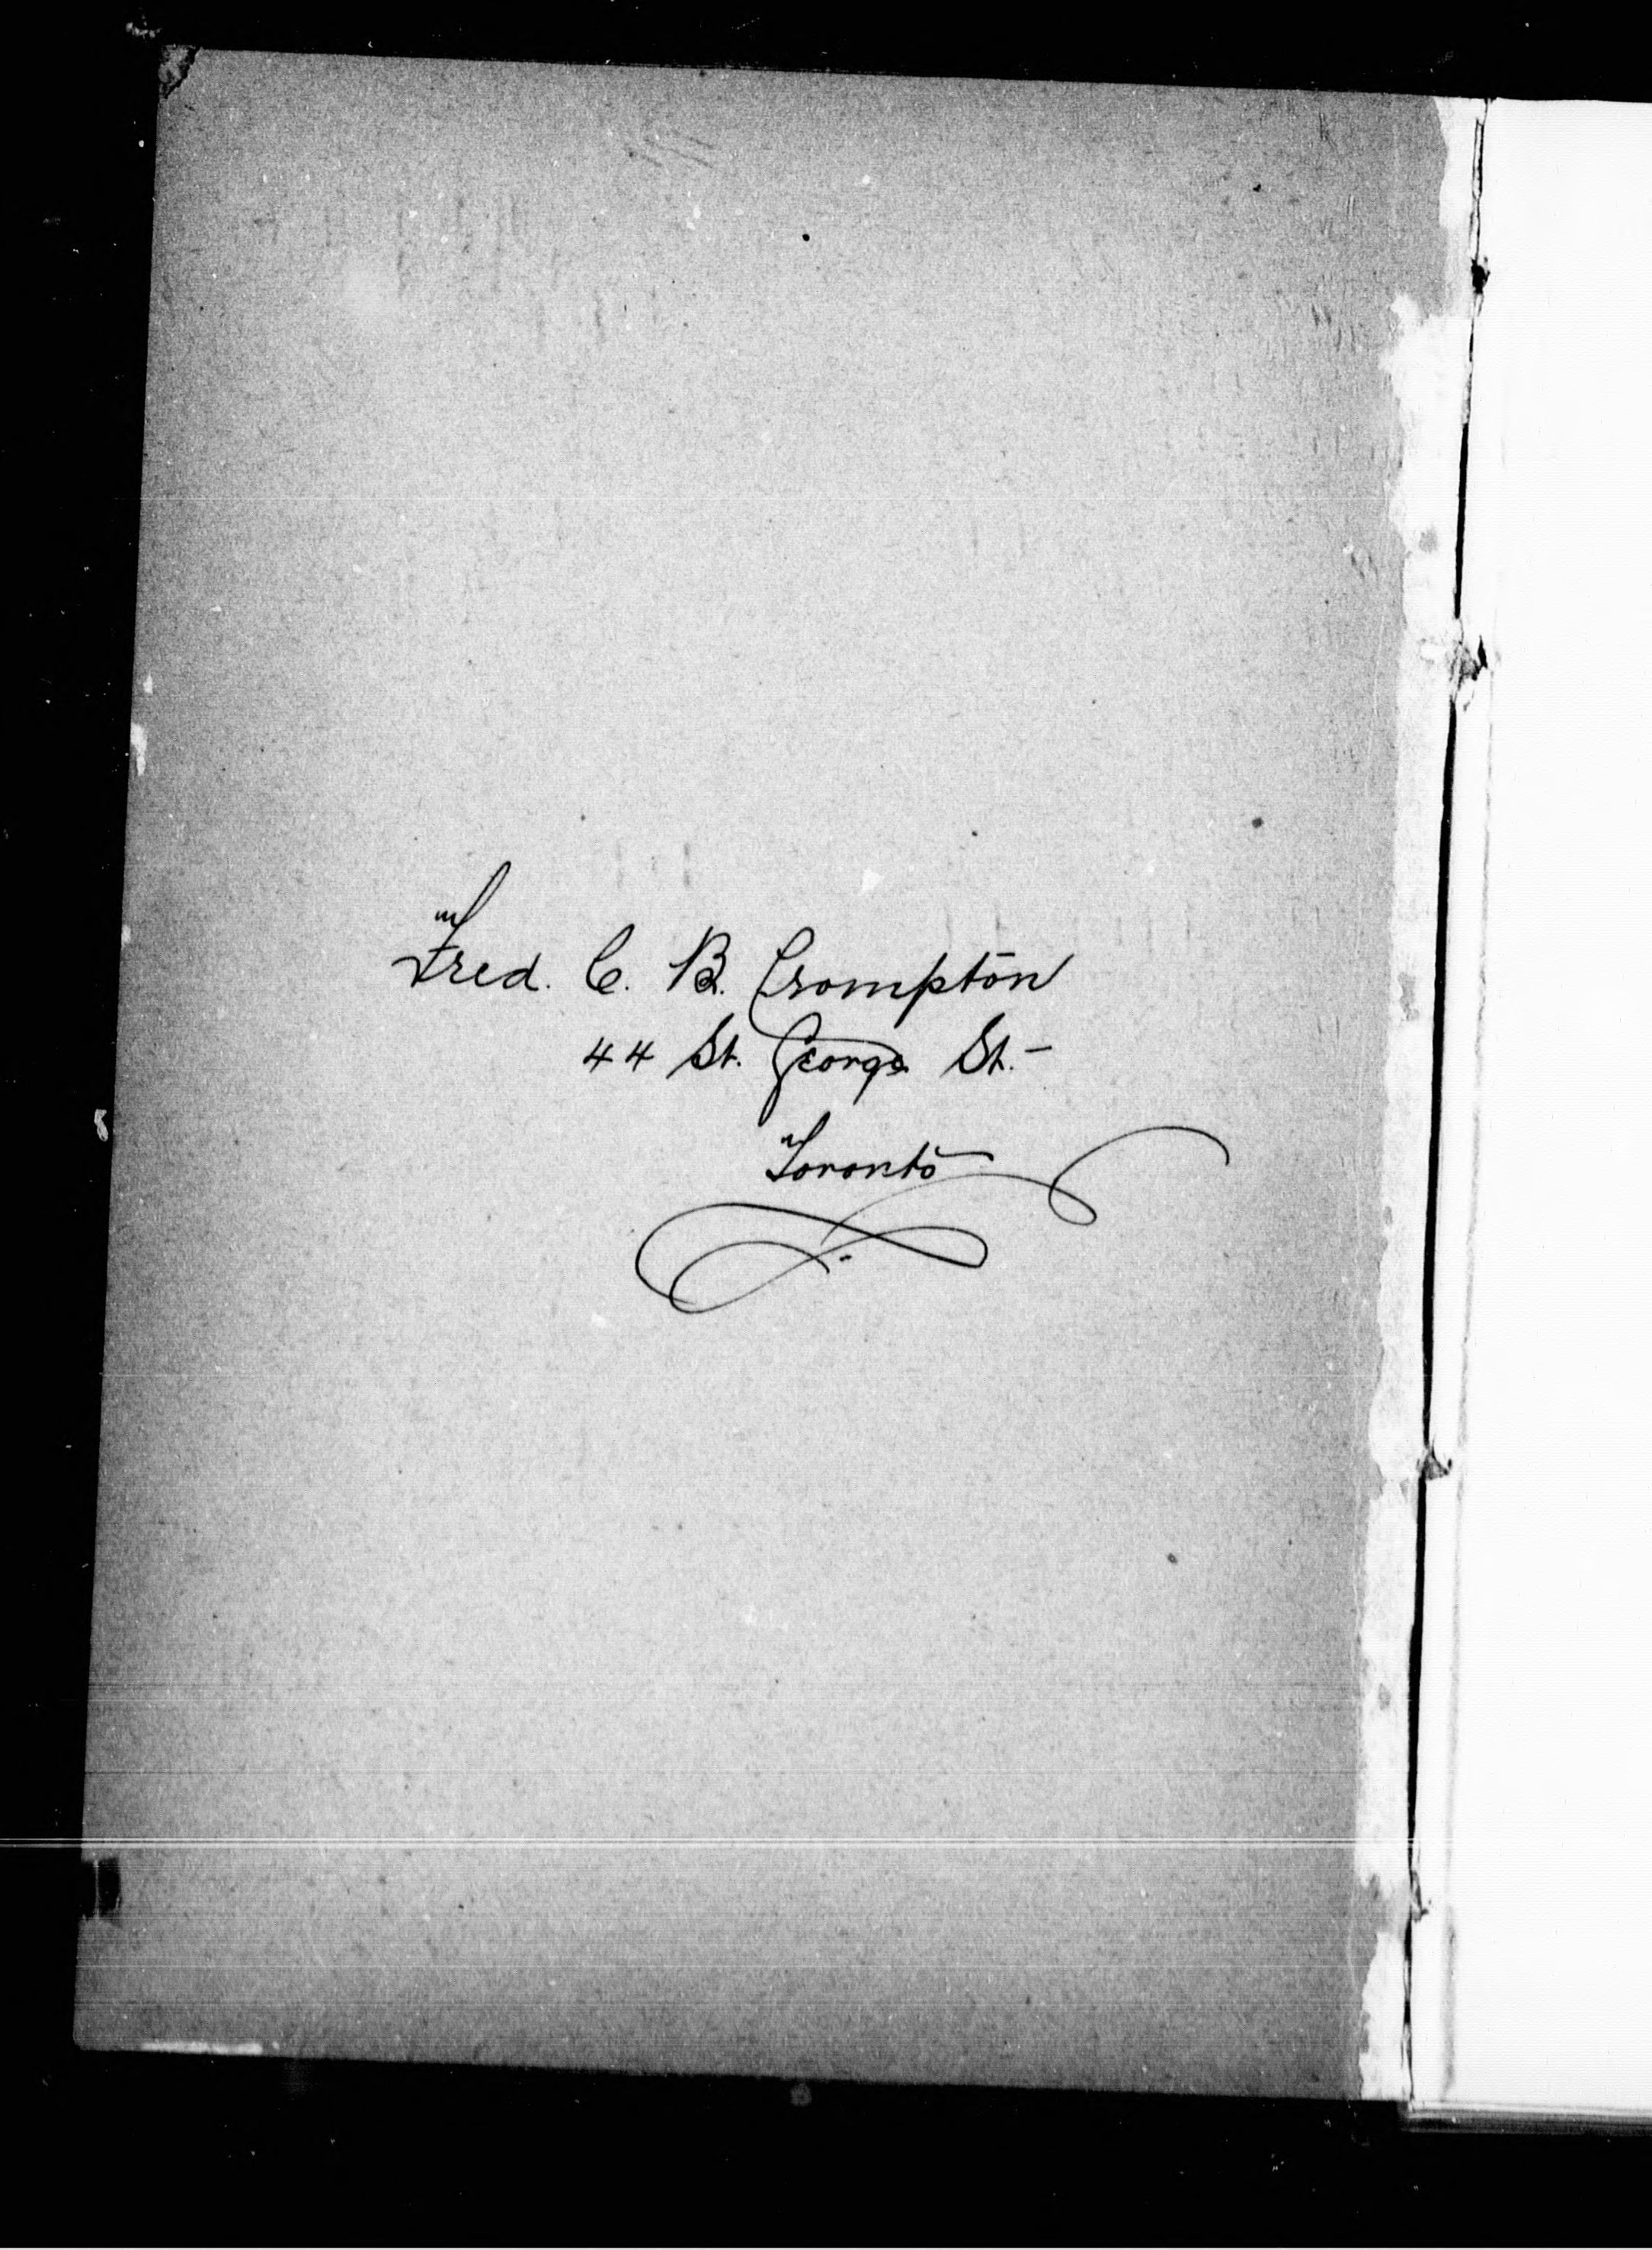 Fred. C. B. Crompton
44 St. George St.-
Toronto